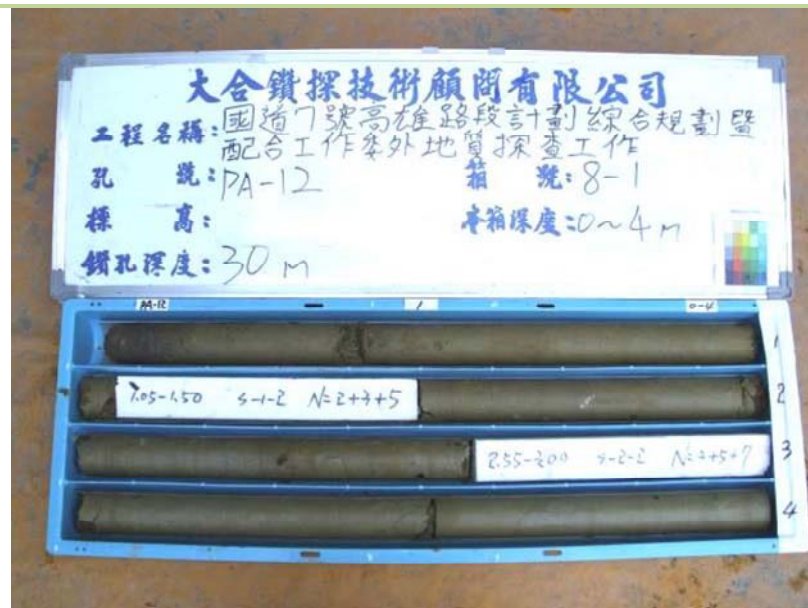 大合鑽探技術顧問有限公司
工程名稱:國道7號高雄路段計劃綜合規劃暨
配合工作委外地質探查工作
孔 號:PA-12 箱 號:8-1
標 高: 本箱深度:0~4m
鑽孔深度:30m
PA-12 1 0-4
1
1.05-1.50 S-1-2 N=2+3+5 2
2.55-3.00 S-2-2 N=3+5+7 3
4